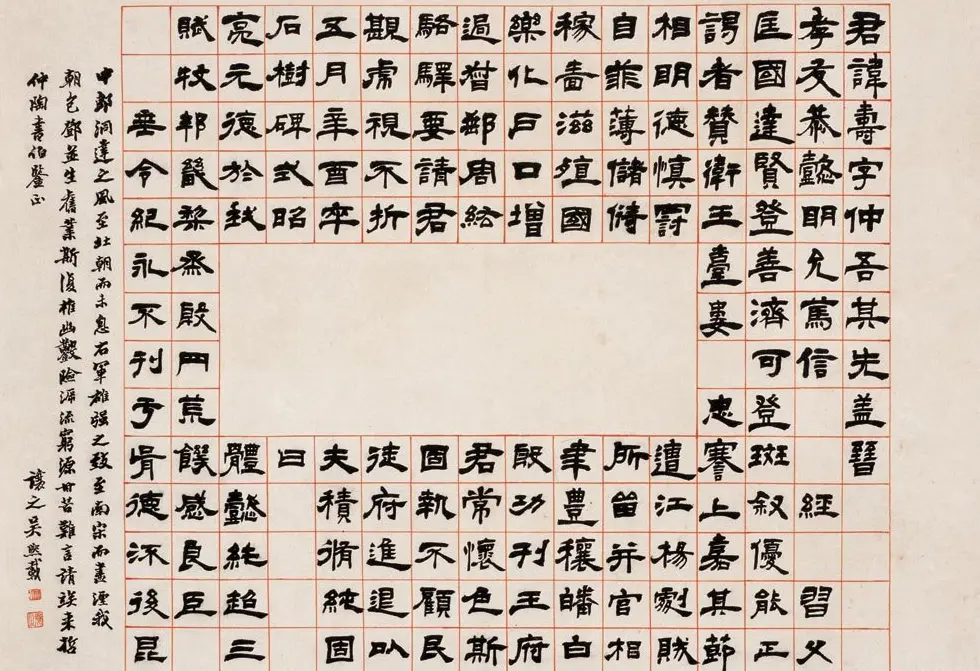 君諱壽字仲吾其先盖晉
孝友恭懿明允篤信經習父
匡國達賢登善濟可登斑敘優能正
謁者贊衛王臺婁忠謇上嘉其節
相明德慎罸遭江楊劇賊
自菲薄儲偫所畄并官相
稼啬滋殖國聿豐穰皤白
樂化戶口增殷功刊王府
過鄰周紘君常懷色斯
駱驛要請君固執不顧民
覲虎視不折徒府進退以
五月辛酉卒夫積脩純固
石樹碑式昭曰
亮元德於我體懿純超三
賦牧邦畿黎烝殷荒饌感良臣
垂令紀永不刊于胥德流後昆
中郎洞達之風至北朝而未息右軍雄强之致至南宋而盡湮我
朝包鄧並生舊業斯復椎幽鑿險溯流窮源甘苦難言請俟来哲
仲陶書伯鑒正
讓之吳熙載